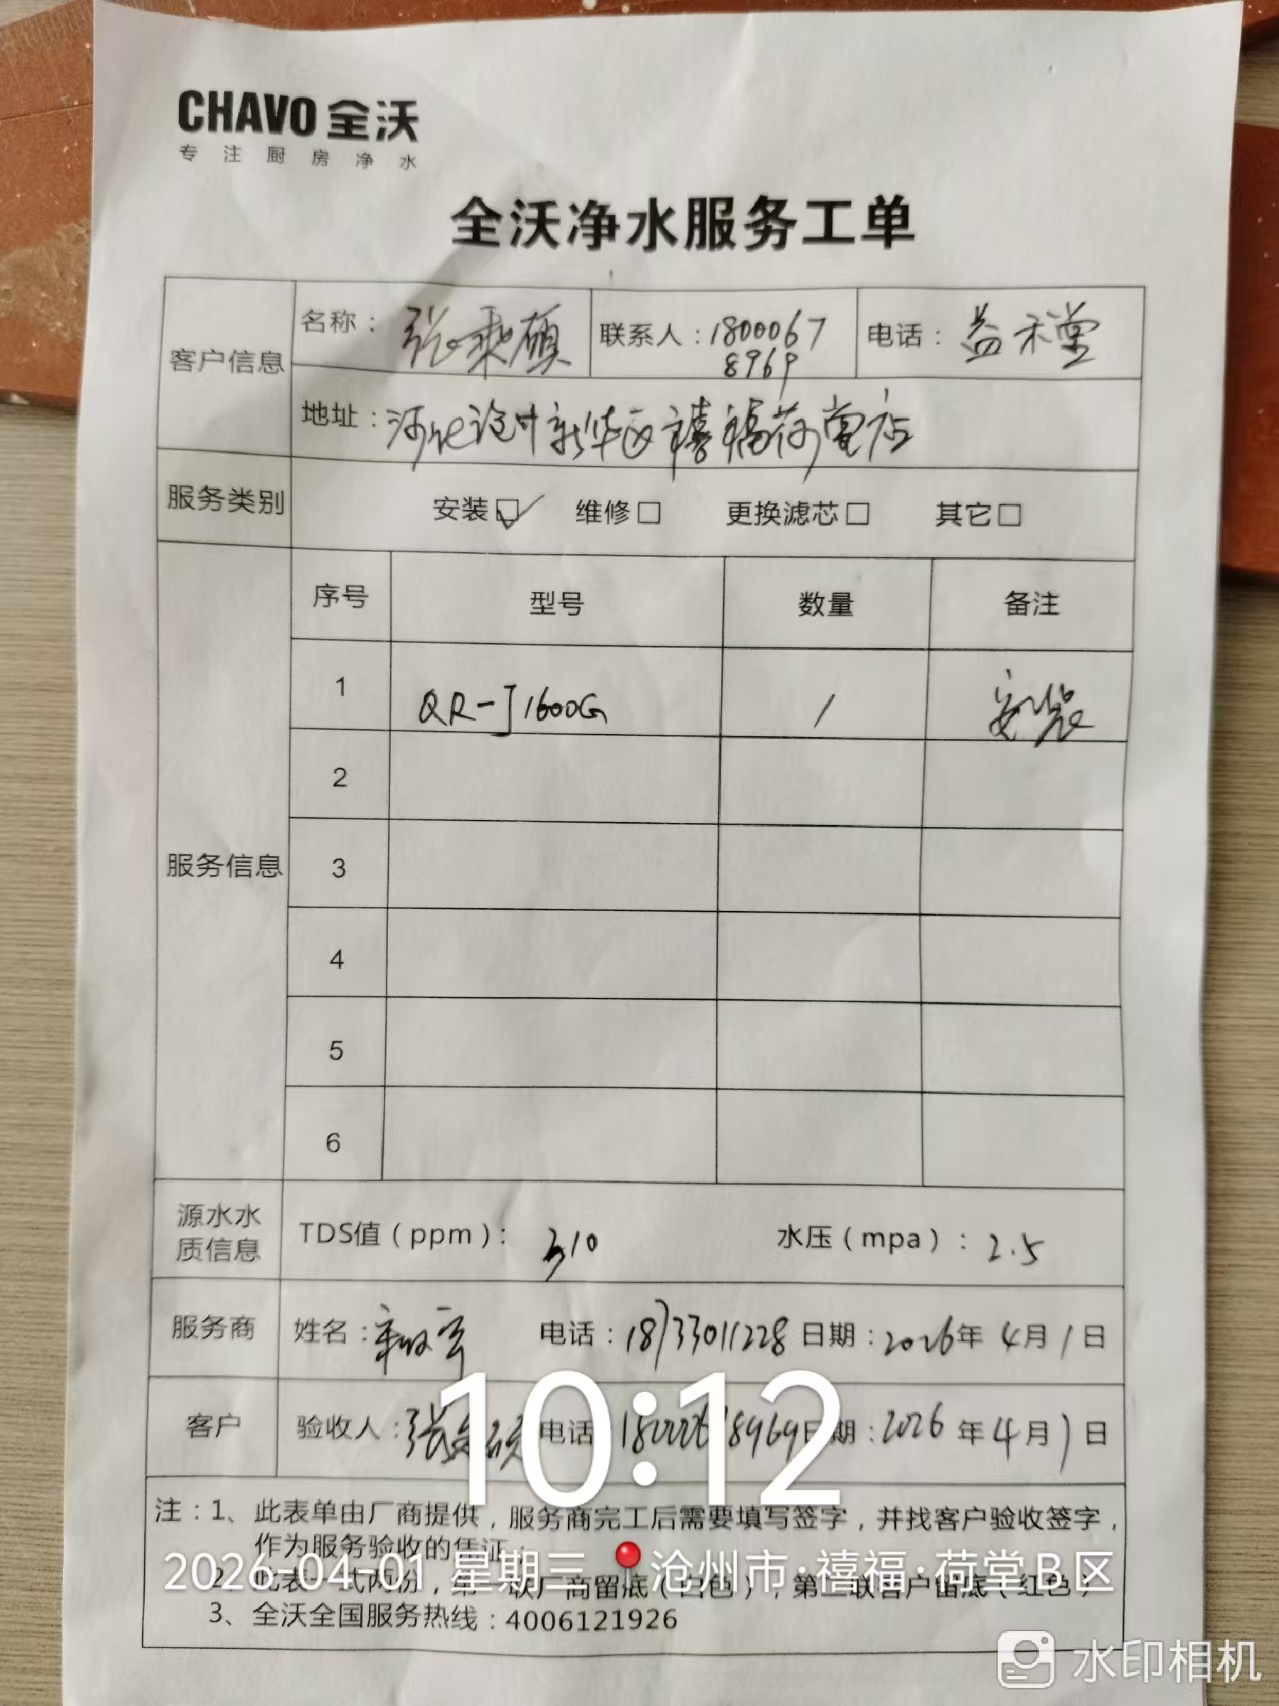 CHAVO 全沃
专注厨房净水
全沃净水服务工单
客户信息 名称：张秉硕 联系人：1800067 8969 电话：益禾堂
地址：河北沧州新华区禧福荷堂店
服务类别 安装☑ 维修□ 更换滤芯□ 其它□
服务信息 序号 型号 数量 备注
1 QR-J1600G 1 安装
2
3
4
5
6
源水水质信息 TDS值（ppm）：310 水压（mpa）：2.5
服务商 姓名： 电话：18733011228 日期：2026年4月1日
客户 验收人：张秉硕 电话：18000678969 日期：2026年4月1日
10:12
注：1、此表单由厂商提供，服务商完工后需要填写签字，并找客户验收签字，
作为服务验收的凭证；
2026.04.01 星期三 沧州市·禧福·荷堂B区
2、此表一式两份，第一联厂商留底（白色），第二联客户留底（红色）
3、全沃全国服务热线：4006121926
水印相机